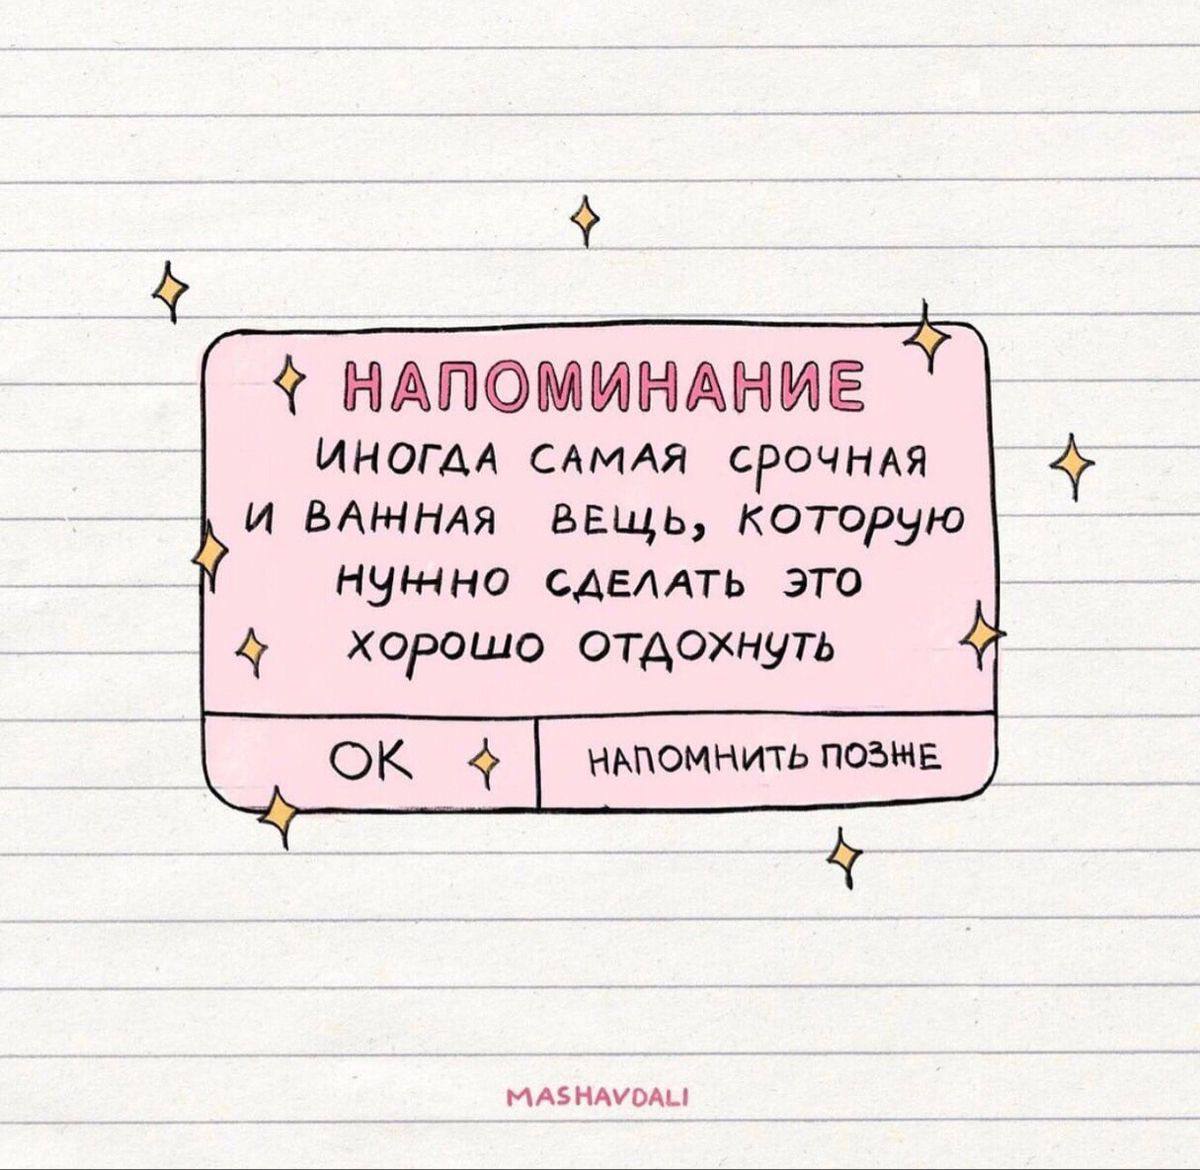 НАПОМИНАНИЕ
ИНОГДА САМАЯ СРОЧНАЯ
И ВАЖНАЯ ВЕЩЬ, КОТОРУЮ
НУЖНО СДЕЛАТЬ ЭТО
ХОРОШО ОТДОХНУТЬ
ОК
НАПОМНИТЬ ПОЗЖЕ
MASHAVDALI